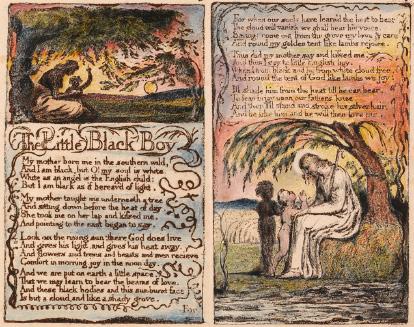 The Little Black Boy
My mother bore me in the southern wild,
And I am black, but O! my soul is white.
White as an angel is the English child:
But I am black as if bereav'd of light.
My mother taught me underneath a tree
And sitting down before the heat of day.
She took me on her lap and kissed me,
And pointing to the east began to say.
Look on the rising sun: there God does live
And gives his light, and gives his heat away.
And flowers and trees and beasts and men recieve
Comfort in morning joy in the noon day.
And we are put on earth a little space.
That we may learn to bear the beams of love.
And these black bodies and this sun-burnt face
Is but a cloud, and like a shady grove.
For
For when our souls have learn'd the heat to bear
The cloud will vanish we shall hear his voice.
Saying: come out from the grove my love & care
And round my golden tent like lambs rejoice.
Thus did my mother say and kissed me,
And thus I say to little English boy.
When I from black and he from white cloud free,
And round the tent of God like lambs we joy:
Ill shade him from the heat till he can bear,
To lean in joy upon our fathers knee.
And then I'll stand and stroke his silver hair,
And be like him and he will then love me.